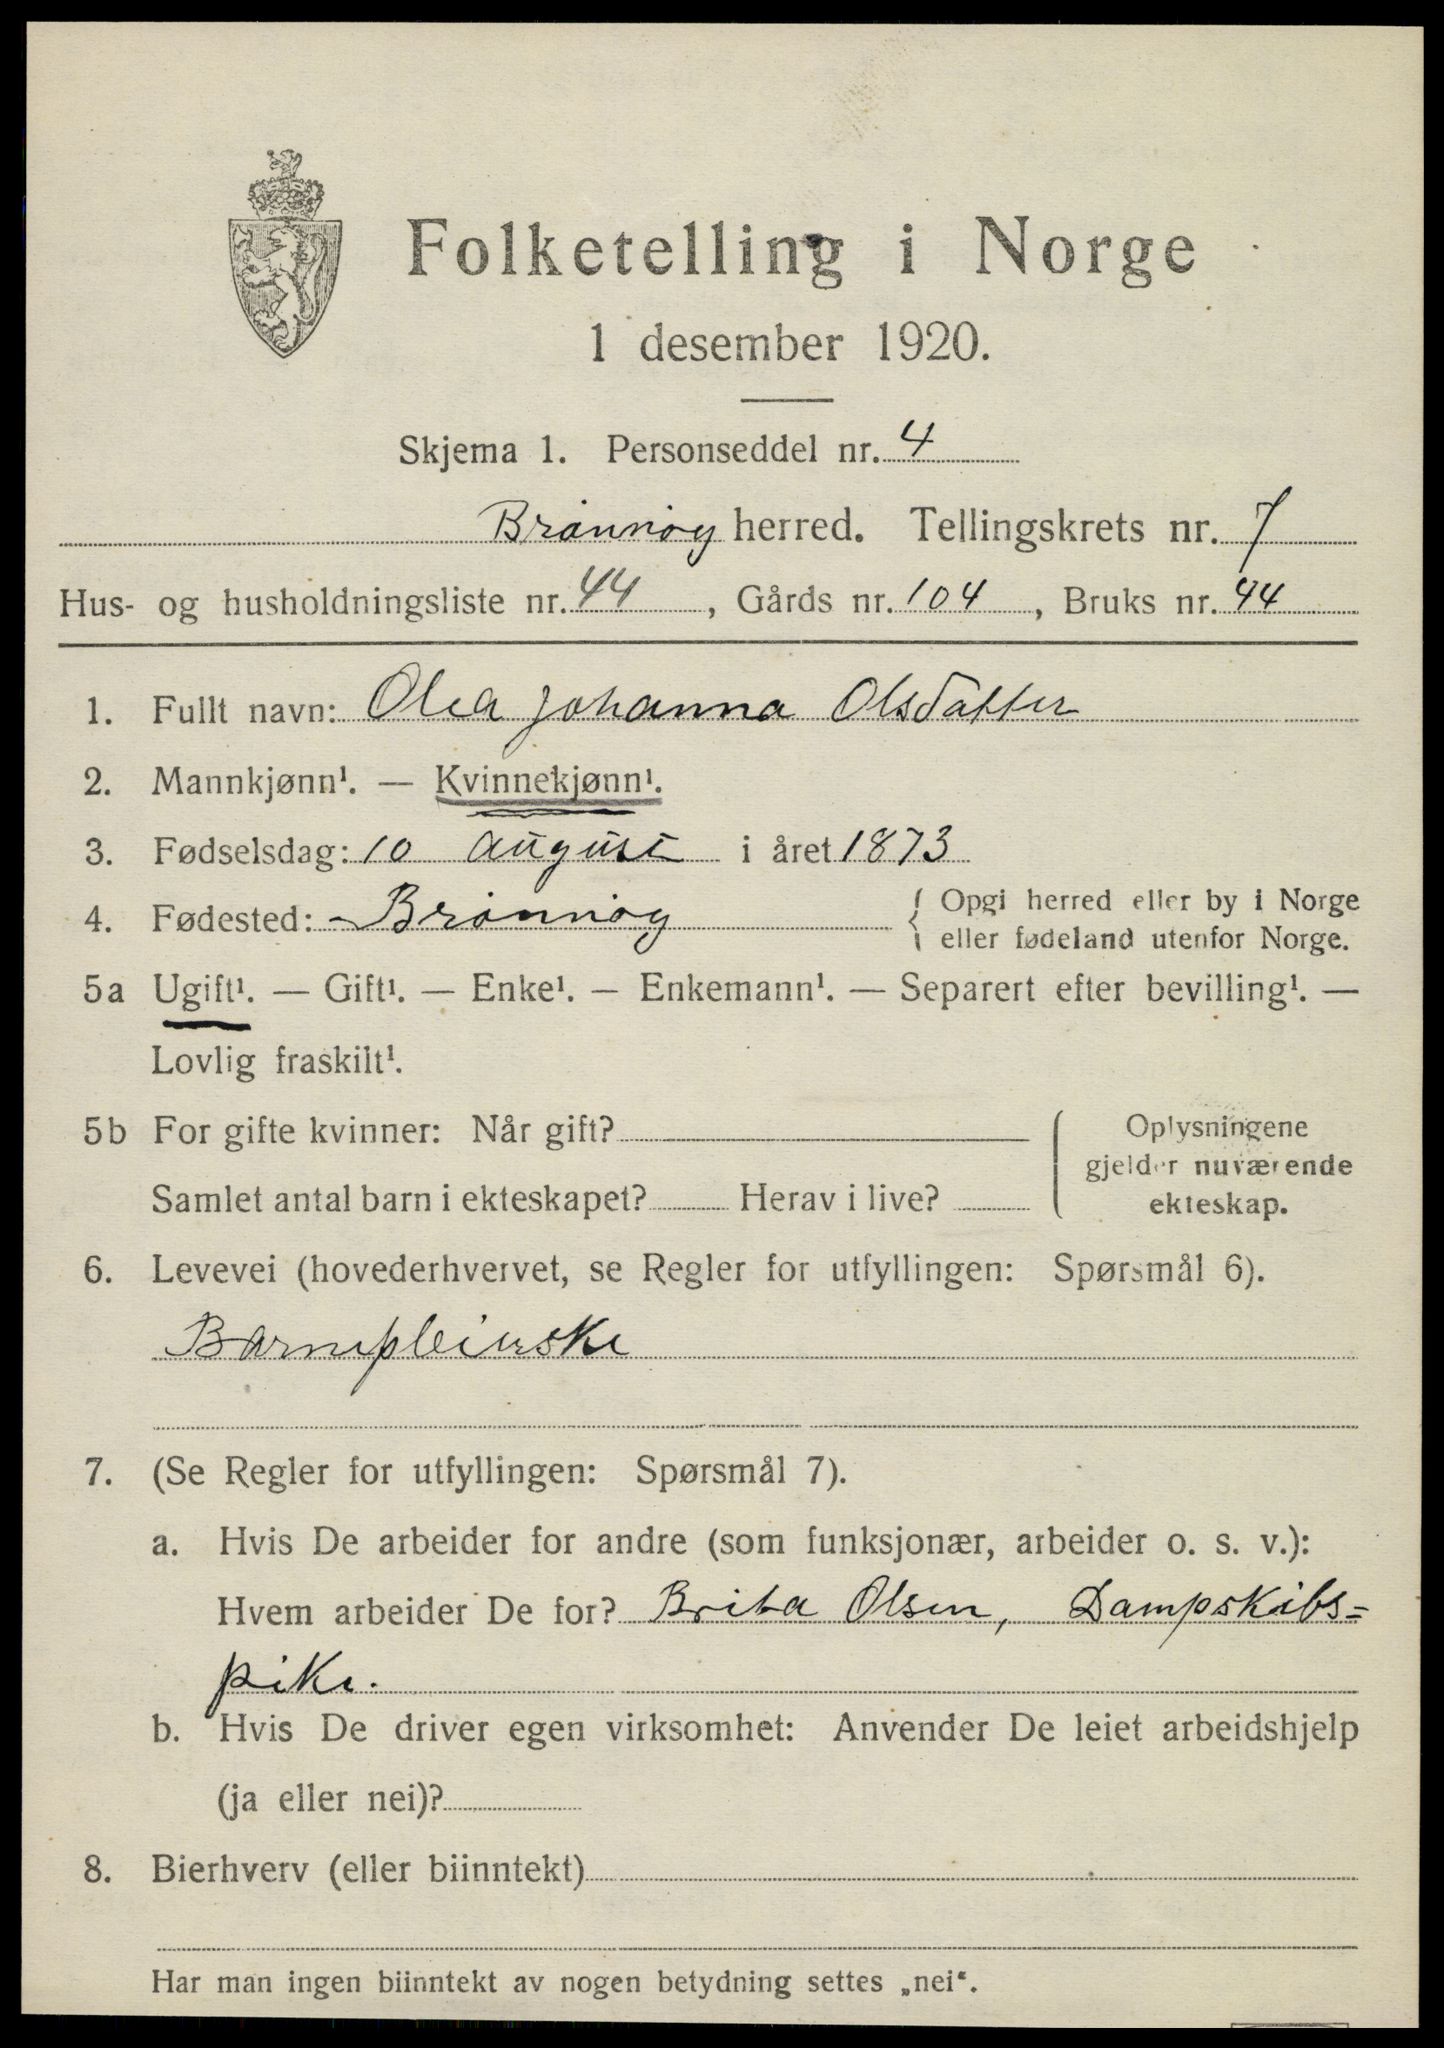 Folketelling i Norge
1 desember 1920.
Skjema 1. Personseddel nr. 4
Brønnøy herred. Tellingskrets nr. 7
Hus- og husholdningsliste nr. 44, Gårds nr. 104, Bruks nr. 44
1. Fullt navn: Olea Johanna Olsdatter
2. Mannkjønn¹. — Kvinnekjønn¹.
3. Fødselsdag: 10 august i året 1873
4. Fødested: Brønnøy { Opgi herred eller by i Norge
eller fødeland utenfor Norge.
5a Ugift¹. — Gift¹. — Enke¹. — Enkemann¹. — Separert efter bevilling¹. —
Lovlig fraskilt¹.
5b For gifte kvinner: Når gift?
Samlet antal barn i ekteskapet? Herav i live?
Oplysningene
gjelder nuværende
ekteskap.
6. Levevei (hovederhvervet, se Regler for utfyllingen: Spørsmål 6).
Barnepleierske
7. (Se Regler for utfyllingen: Spørsmål 7).
a. Hvis De arbeider for andre (som funksjonær, arbeider o. s. v.):
Hvem arbeider De for? Brita Olsen, Dampskibs=
pike.
b. Hvis De driver egen virksomhet: Anvender De leiet arbeidshjelp
(ja eller nei)?
8. Bierhverv (eller biinntekt)
Har man ingen biinntekt av nogen betydning settes „nei“.